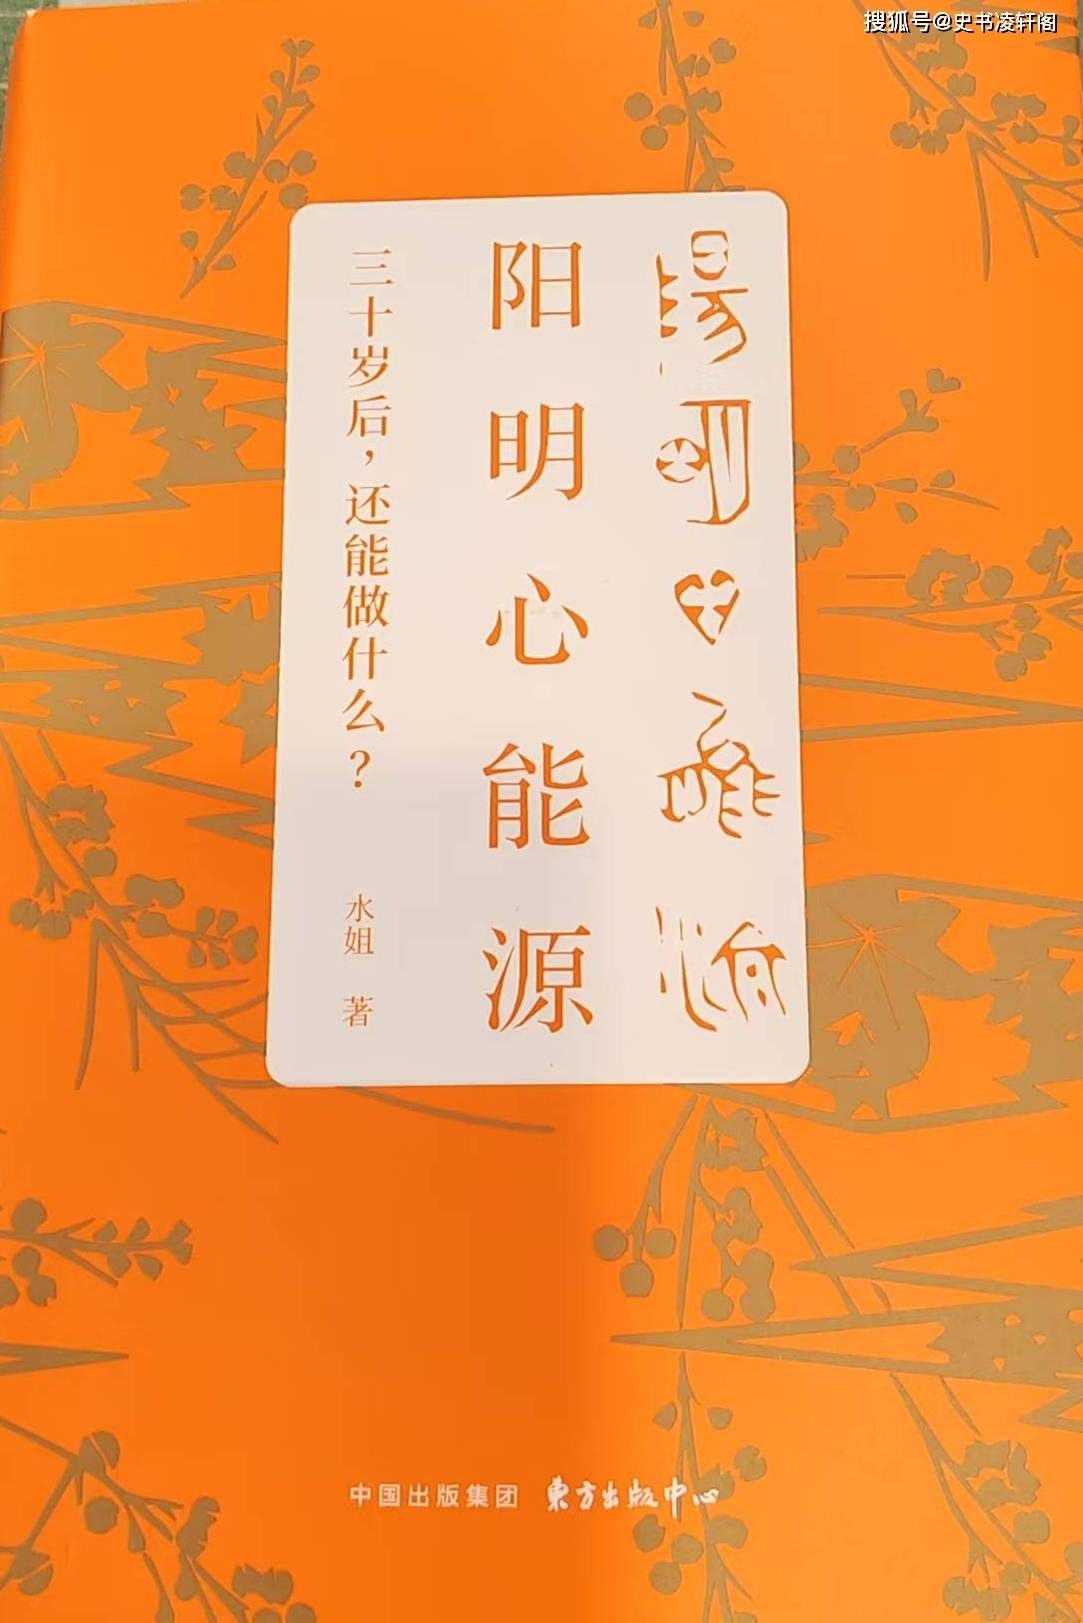 搜狐号@史书凌轩阁
陽明心能源
阳明心能源
三十岁后，还能做什么？
水姐 著
中国出版集团 东方出版中心